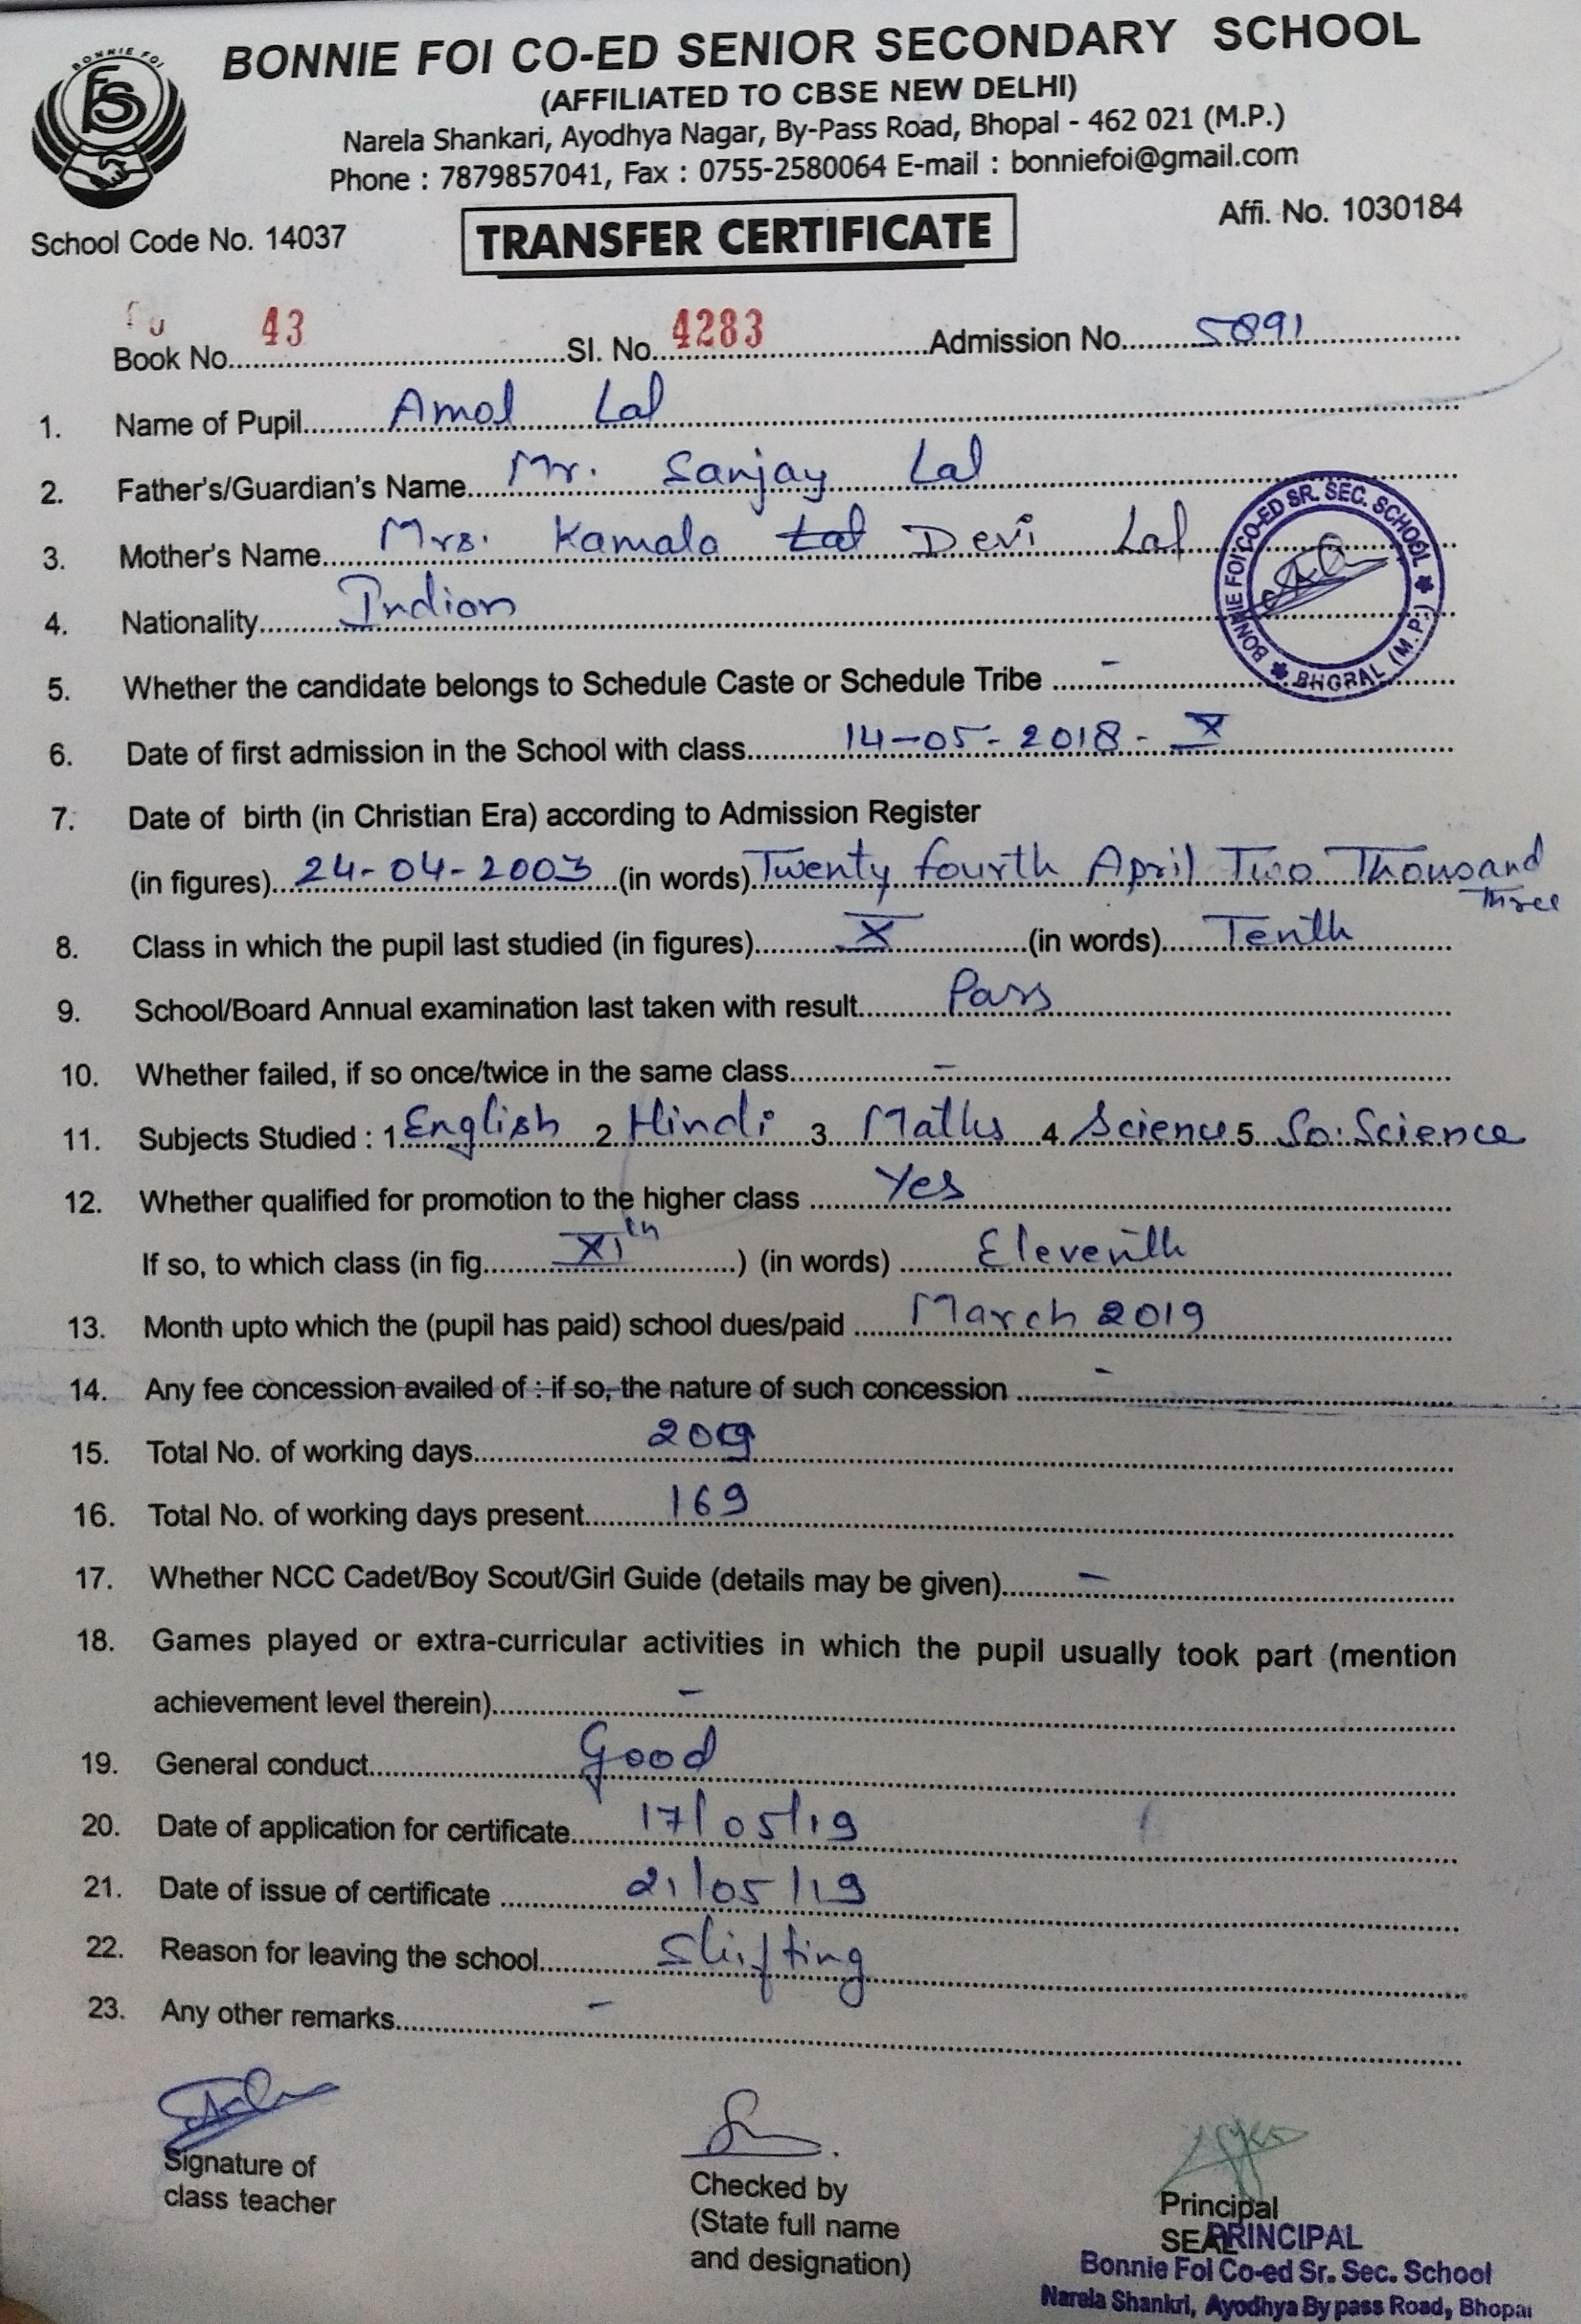 BONNIE FOI
BONNIE FOI CO-ED SENIOR SECONDARY SCHOOL
(AFFILIATED TO CBSE NEW DELHI)
Narela Shankari, Ayodhya Nagar, By-Pass Road, Bhopal - 462 021 (M.P.)
Phone : 7879857041, Fax : 0755-2580064 E-mail : bonniefoi@gmail.com
School Code No. 14037
TRANSFER CERTIFICATE
Affi. No. 1030184
Book No. 43 Sl. No. 4283 Admission No. 5891
1. Name of Pupil Amol Lal
2. Father's/Guardian's Name Mr. Sanjay Lal
3. Mother's Name Mrs. Kamala Lal Devi Lal
BONNIE FOI CO-ED SR. SEC. SCHOOL BHOPAL (M.P.)
4. Nationality Indian
5. Whether the candidate belongs to Schedule Caste or Schedule Tribe -
6. Date of first admission in the School with class 14-05-2018 - X
7. Date of birth (in Christian Era) according to Admission Register
(in figures) 24-04-2003 (in words) Twenty fourth April Two Thousand
Three
8. Class in which the pupil last studied (in figures) X (in words) Tenth
9. School/Board Annual examination last taken with result Pass
10. Whether failed, if so once/twice in the same class -
11. Subjects Studied : 1. English 2. Hindi 3. Maths 4. Science 5. So. Science
12. Whether qualified for promotion to the higher class Yes
If so, to which class (in fig. XIth ) (in words) Eleventh
13. Month upto which the (pupil has paid) school dues/paid March 2019
14. Any fee concession availed of : if so, the nature of such concession -
15. Total No. of working days 209
16. Total No. of working days present 169
17. Whether NCC Cadet/Boy Scout/Girl Guide (details may be given) -
18. Games played or extra-curricular activities in which the pupil usually took part (mention
achievement level therein) -
19. General conduct Good
20. Date of application for certificate 17/05/19
21. Date of issue of certificate 21/05/19
22. Reason for leaving the school Shifting
23. Any other remarks -
Signature of
class teacher
Checked by
(State full name
and designation)
Principal
SEAL
PRINCIPAL
Bonnie Foi Co-ed Sr. Sec. School
Narela Shankri, Ayodhya By pass Road, Bhopal